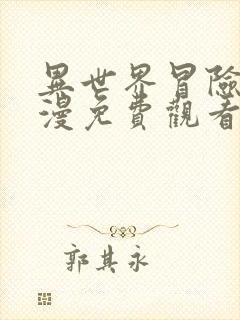 異世界冒險
漫免費觀看
郭其永